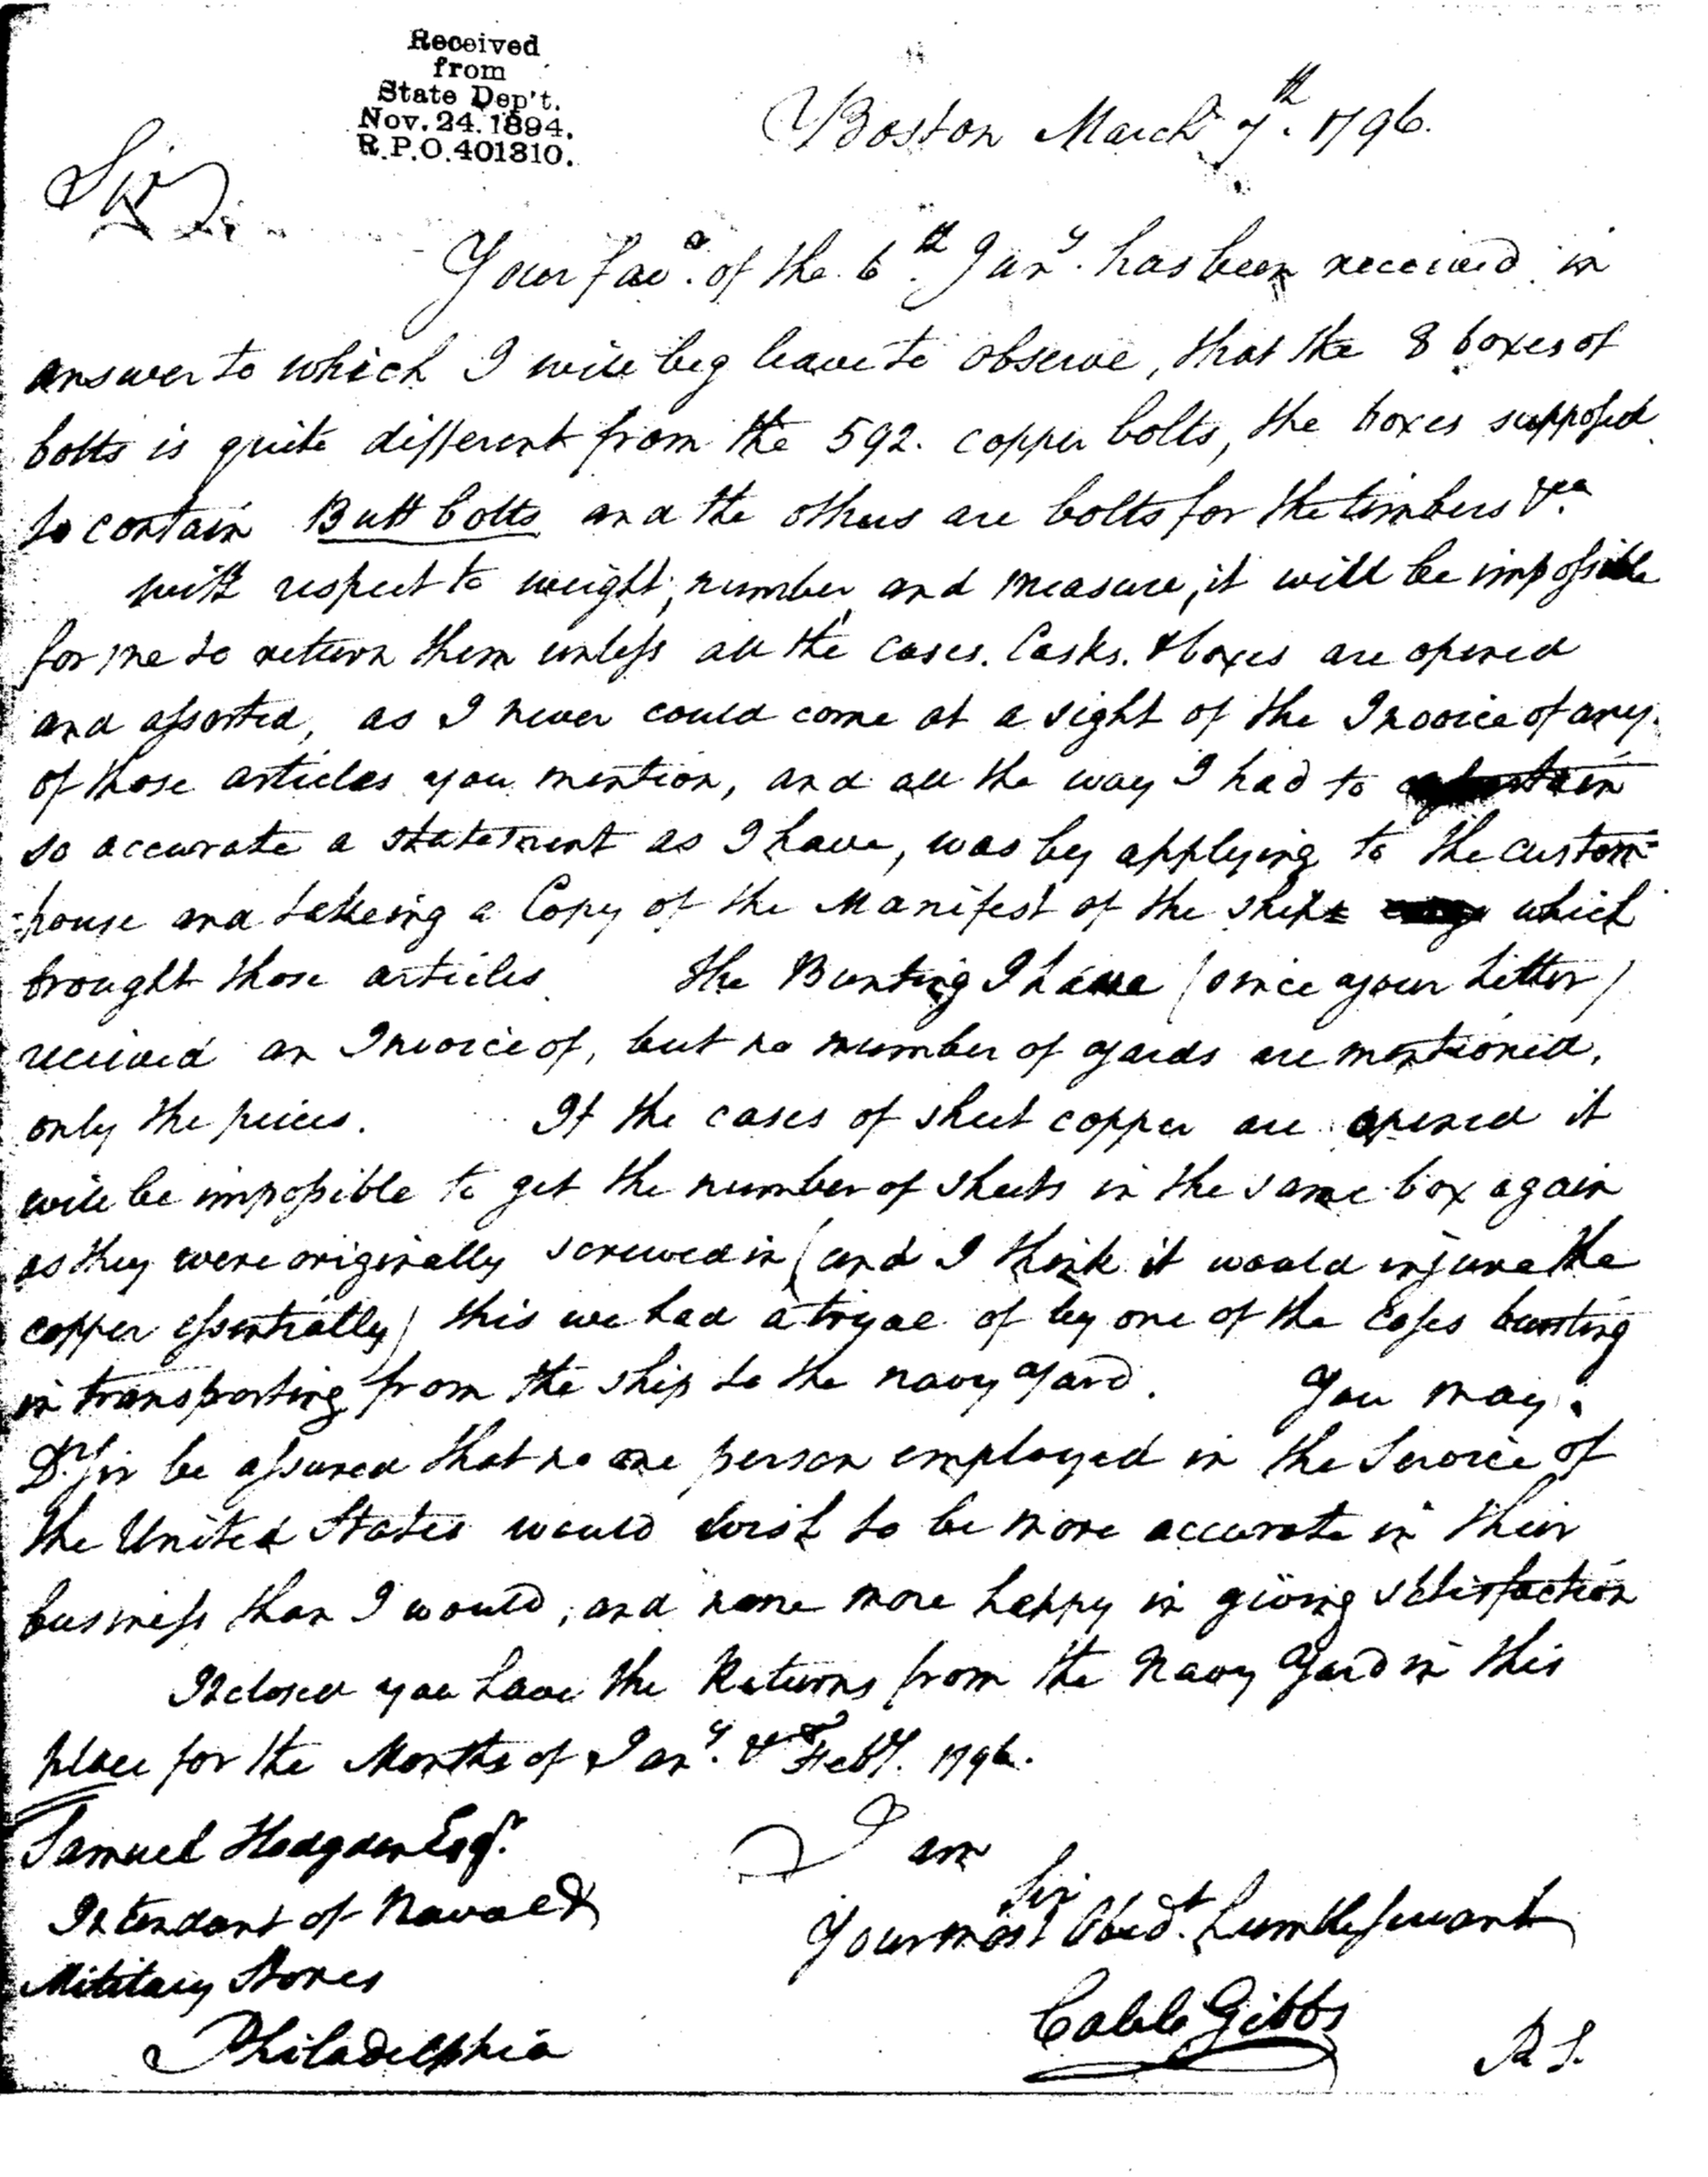 Received
from
State Dep't.
Nov. 24. 1894.
R.P.O. 401810.
Boston March 7th. 1796.
Sir
Your favr. of the 6th. Jany. has been received in
answer to which I will beg leave to observe, that the 8 boxes of
bolts is quite different from the 592. copper bolts, the boxes supposed
to contain Butt bolts and the others are bolts for the timbers &ca.
with respect to weight, number, and measure, it will be impossible
for me to return them unless all the cases. Casks. & boxes are opened
and assorted, as I never could come at a sight of the Invoice of any
of those articles you mention, and all the way I had to
so accurate a statement as I have, was by applying to the custom=
=house and takeing a Copy of the Manifest of the ships which
brought those articles. the Bunting I have (since your Letter)
received an Invoice of, but no number of yards are mentioned,
only the peices. If the cases of sheet copper are opened it
will be impossible to get the number of sheets in the same box again
as they were originally screwed in (and I think it would injure the
copper essentially) this we had a tryal of by one of the cases bursting
in transporting from the ship to the navy yard. You may
Dr. Sir be assured that no one person employed in the Service of
the United States would wish to be more accurate in their
business than I would, and none more happy in giving satisfaction
Inclosed you have the Returns from the Navy Yard in this
place for the Months of Jany. & Feby. 1796.
Samuel Hodgdon Esqr.
Intendant of Naval &
Military Stores
Philadelphia
I am
Sir
Your most Obedt. humble servant
Caleb Gibbs